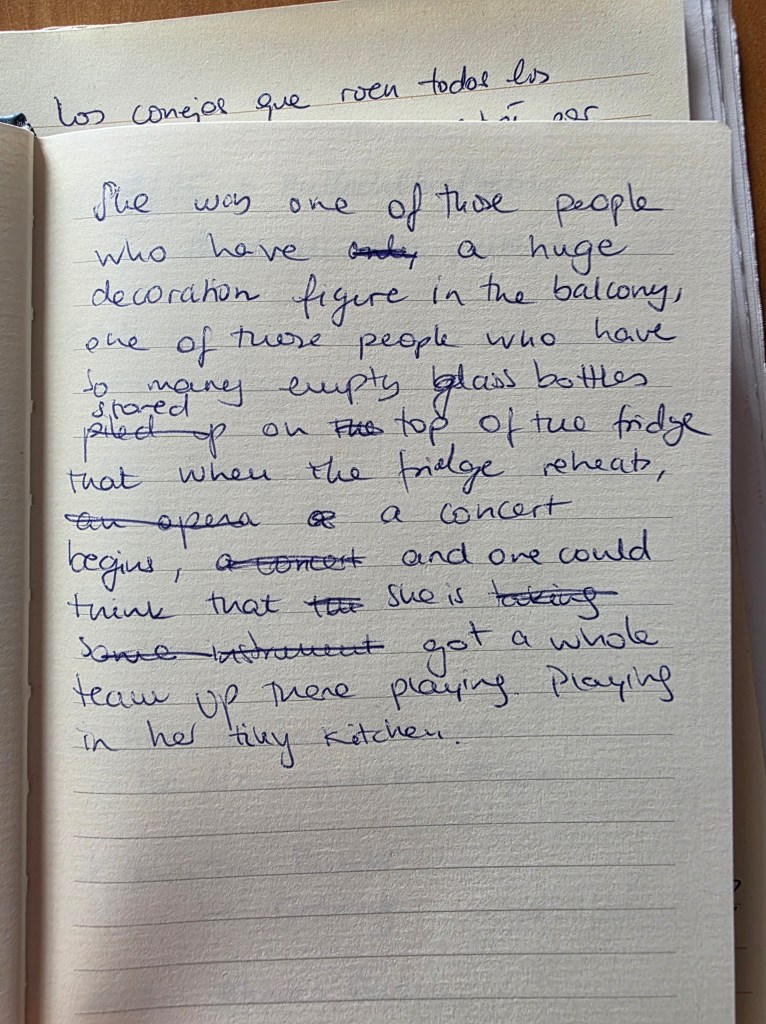 los conejos que roen todos los
por
She was one of those people
who have only, a huge
decoration figure in the balcony,
one of those people who have
so many empty glass bottles
stored
piled up on the top of the fridge
that when the fridge reheats,
an opera or a concert
begins, a concert and one could
think that the she is taking
some instrument got a whole
team up there playing. Playing
in her tiny kitchen.